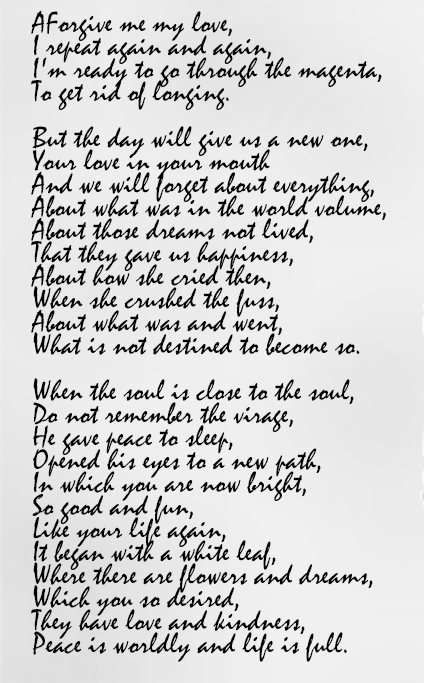 AForgive me my love,
I repeat again and again,
I'm ready to go through the magenta,
To get rid of longing.
But the day will give us a new one,
Your love in your mouth
And we will forget about everything,
About what was in the world volume,
About those dreams not lived,
That they gave us happiness,
About how she cried then,
When she crushed the fuss,
About what was and went,
What is not destined to become so.
When the soul is close to the soul,
Do not remember the virage,
He gave peace to sleep,
Opened his eyes to a new path,
In which you are now bright,
So good and fun,
Like your life again,
It began with a white leaf,
Where there are flowers and dreams,
Which you so desired,
They have love and kindness,
Peace is worldly and life is full.